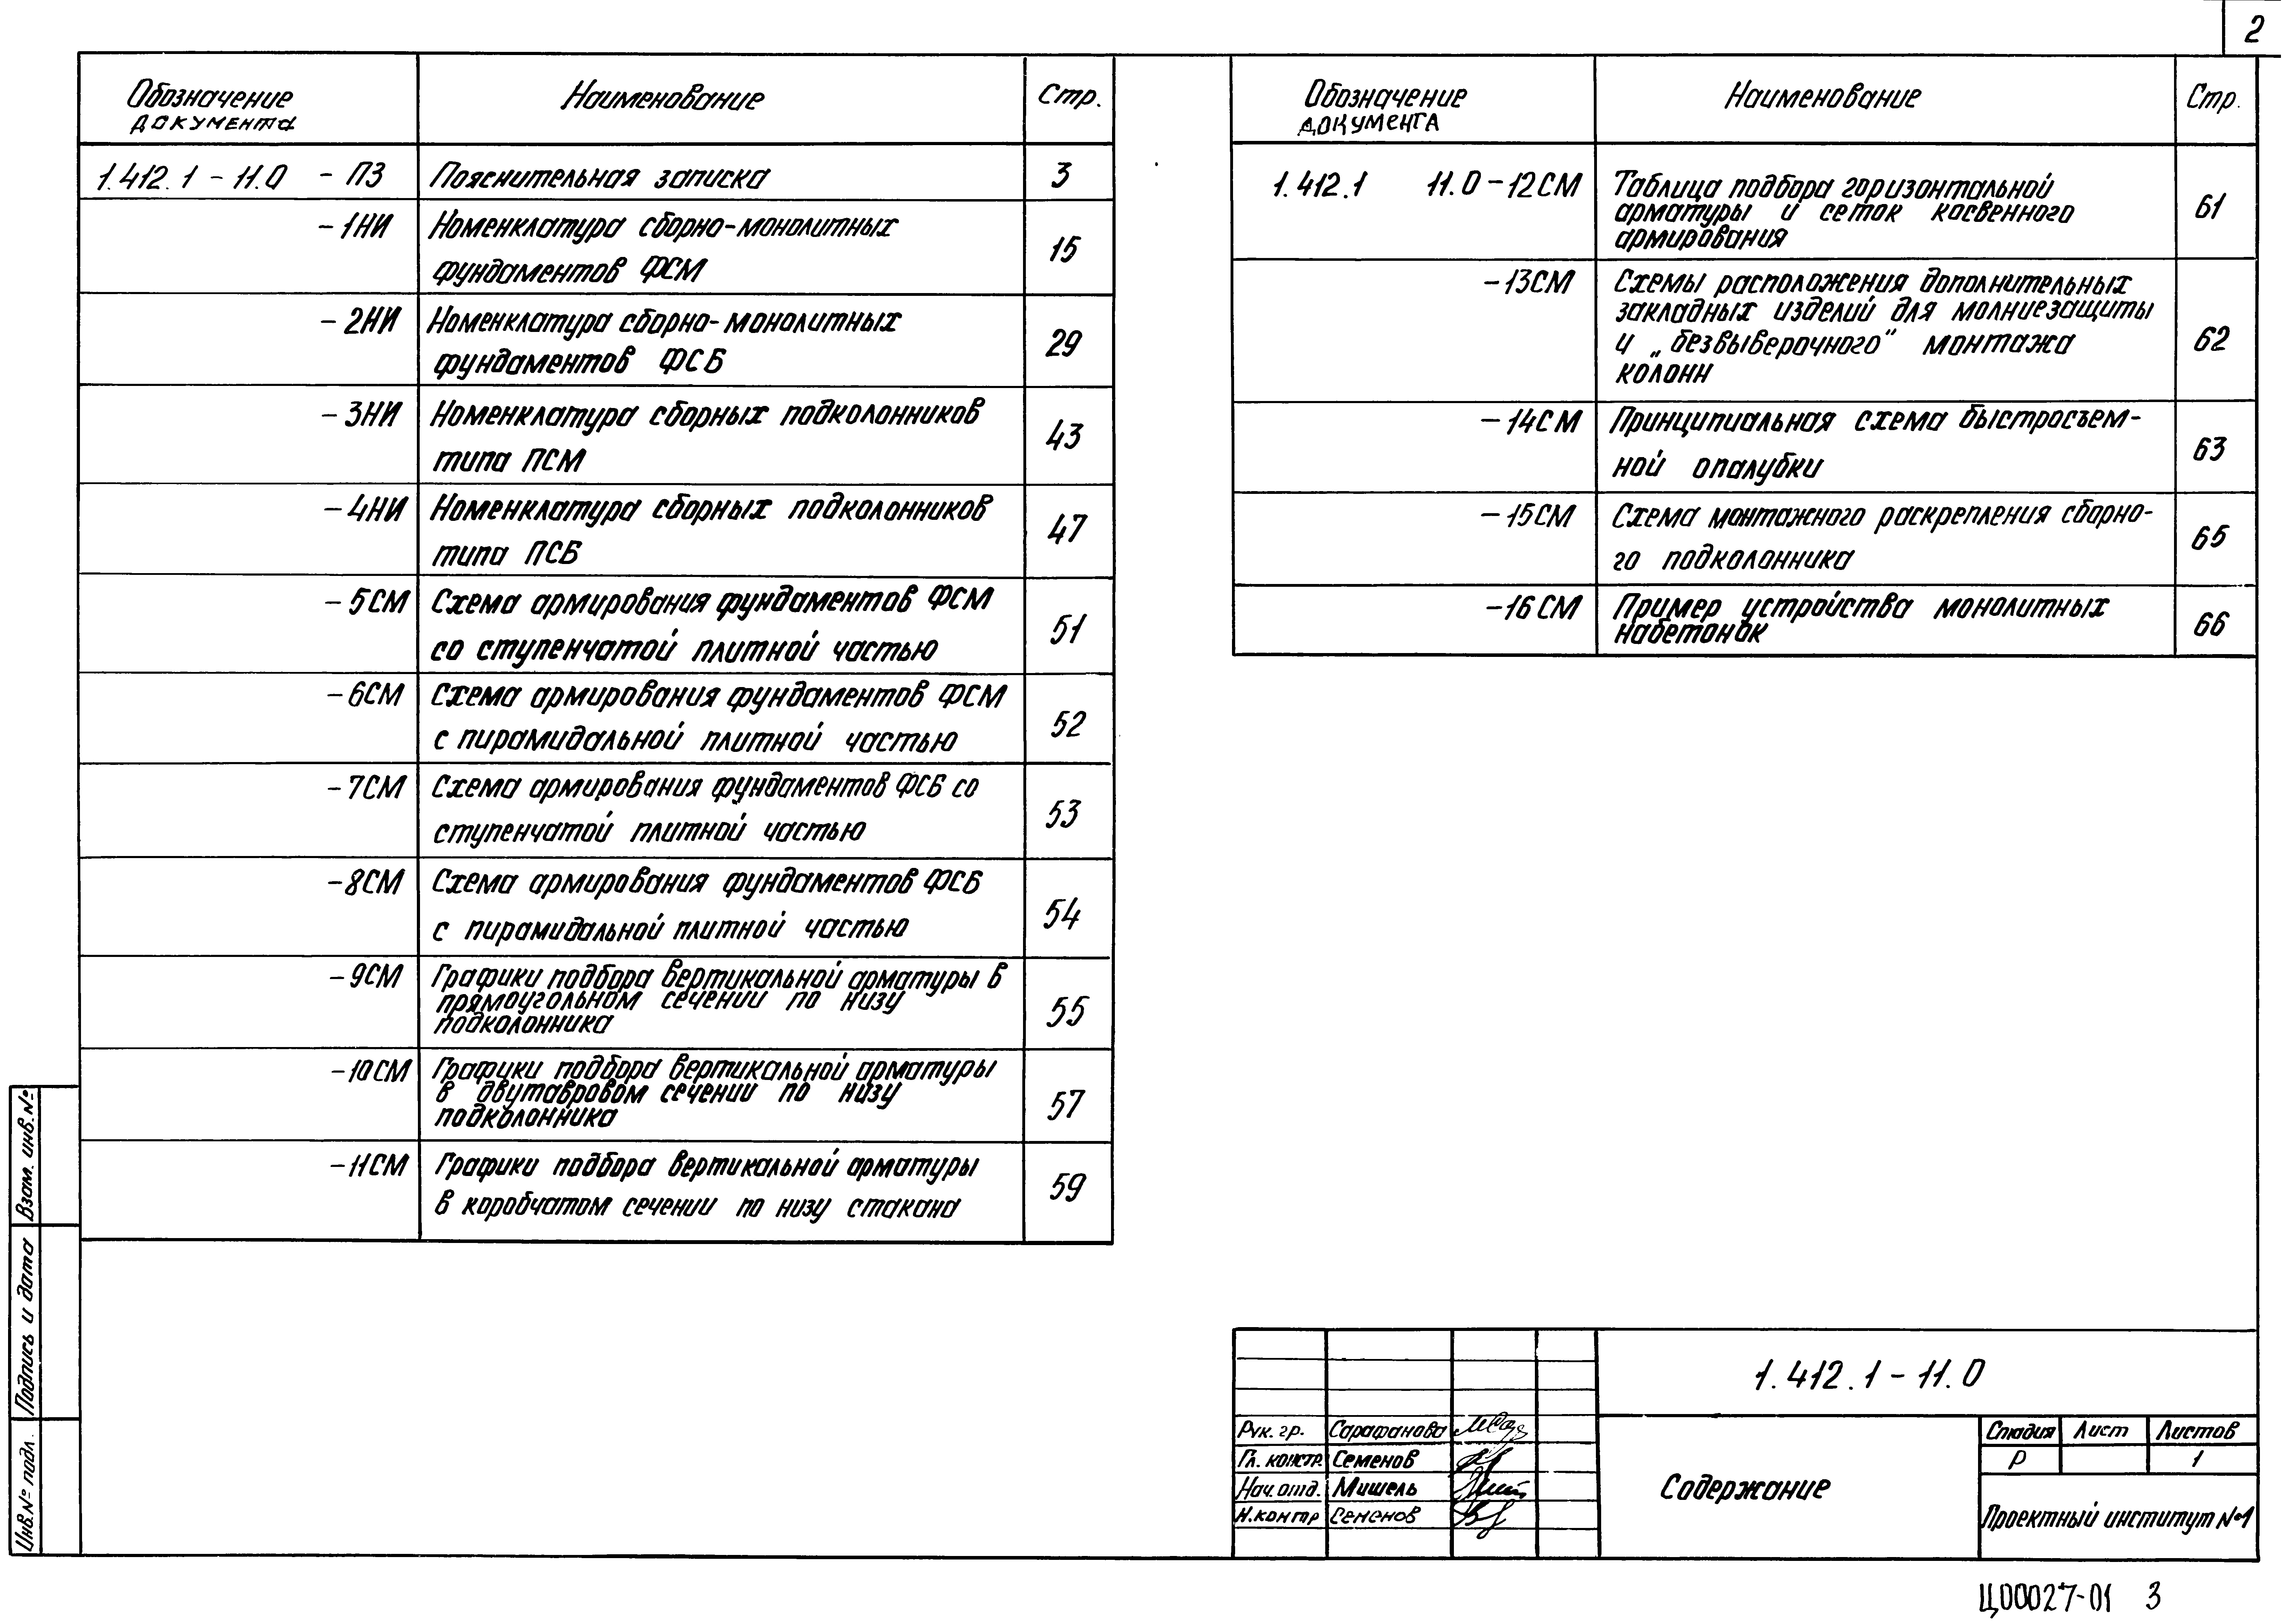 2
Обозначение
документа
Наименование
Стр.
1.412.1 - 11.0 - ПЗ
Пояснительная записка
3
- 1НИ
Номенклатура сборно-монолитных
фундаментов ФСМ
15
- 2НИ
Номенклатура сборно-монолитных
фундаментов ФСБ
29
- 3НИ
Номенклатура сборных подколонников
типа ПСМ
43
- 4НИ
Номенклатура сборных подколонников
типа ПСБ
47
- 5СМ
Схема армирования фундаментов ФСМ
со ступенчатой плитной частью
51
- 6СМ
Схема армирования фундаментов ФСМ
с пирамидальной плитной частью
52
- 7СМ
Схема армирования фундаментов ФСБ со
ступенчатой плитной частью
53
- 8СМ
Схема армирования фундаментов ФСБ
с пирамидальной плитной частью
54
- 9СМ
Графики подбора вертикальной арматуры в
прямоугольном сечении по низу
подколонника
55
- 10СМ
Графики подбора вертикальной арматуры
в двутавровом сечении по низу
подколонника
57
- 11СМ
Графики подбора вертикальной арматуры
в коробчатом сечении по низу стакана
59
Обозначение
документа
Наименование
Стр.
1.412.1 11.0 - 12СМ
Таблица подбора горизонтальной
арматуры и сеток косвенного
армирования
61
- 13СМ
Схемы расположения дополнительных
закладных изделий для молниезащиты
и „безвыверочного" монтажа
колонн
62
- 14СМ
Принципиальная схема быстросъем-
ной опалубки
63
- 15СМ
Схема монтажного раскрепления сборно-
го подколонника
65
- 16СМ
Пример устройства монолитных
набетонок
66
Взам. инв.№
Подпись и дата
Инв.№ подл.
1.412.1 - 11.0
Рук. гр. Сарафанова
Гл. констр. Семенов
Нач. отд. Мишель
Н.контр Семенов
Содержание
Стадия Лист Листов
Р 1
Проектный институт №1
Ц00027-01 3